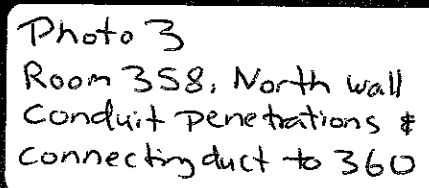 Photo 3
Room 358, North wall
Conduit Penetrations &
Connecting duct to 360